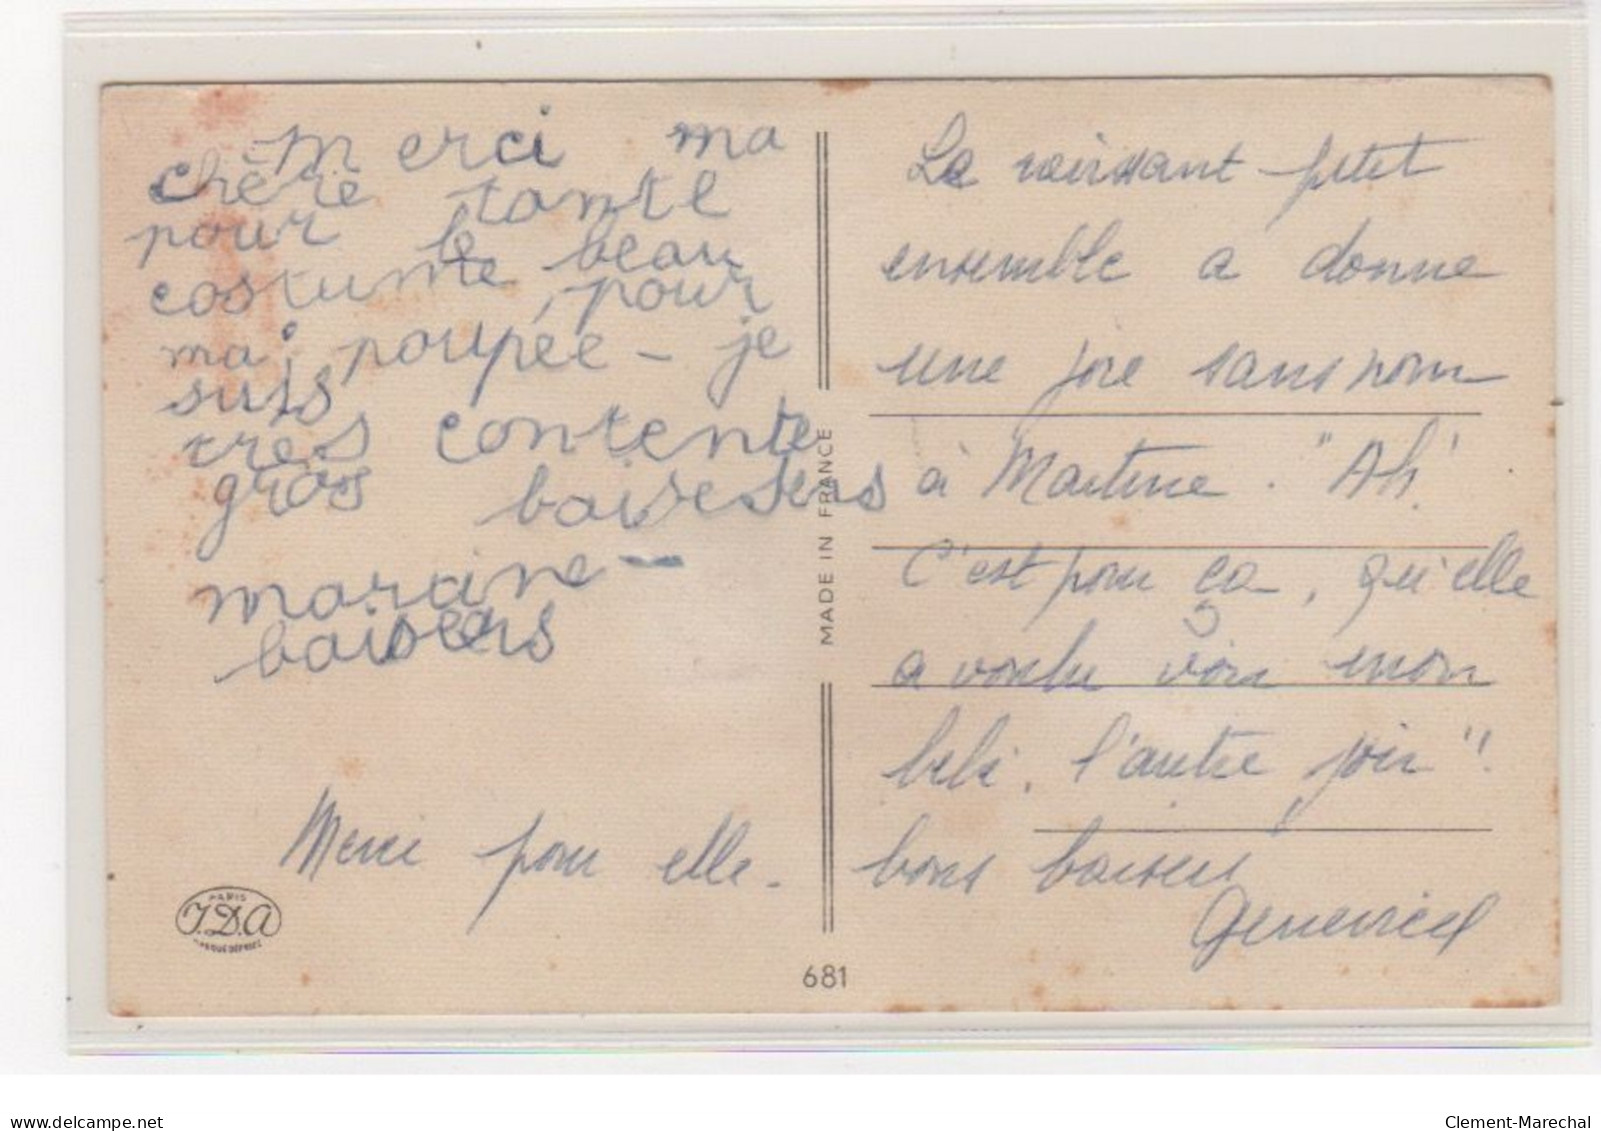 Merci ma
chère tante
pour le beau
costume, pour
ma poupée - je
suis
tres contente
gros baisesers
maraine -
baisers
Merci pour elle -
PARIS
J.D.A
MARQUE DÉPOSÉE
MADE IN FRANCE
681
Le ravissant petit
ensemble a donne
une joie sans nom
à Martine. "Ah!
C'est pour ça, qu'elle
a voulu voir mon
bébé, l'autre jour"!
bons baisers
www.delcampe.net
Clement-Marechal